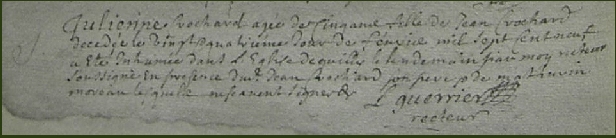 Julienne Rochard age de cinq ans fille de Jean Rochard
decedée le vingt quatrieme jour de fevrier mil sept cent neuf
a été inhumée dans l'Eglise de ce lieu le lendemain par moy recteur
soussigné en presence dudit Jean Rochard son pere & de mathurin
moreau lesquels ne signent
L guerrier
recteur